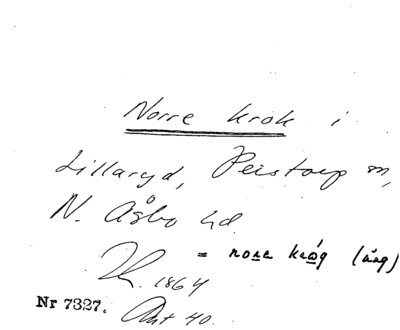 Norre krok i
Lillaryd, Perstorp sn,
N. Åsbo hd.
= nore króg (äng)
1864
Nr 7327. Akt 40.